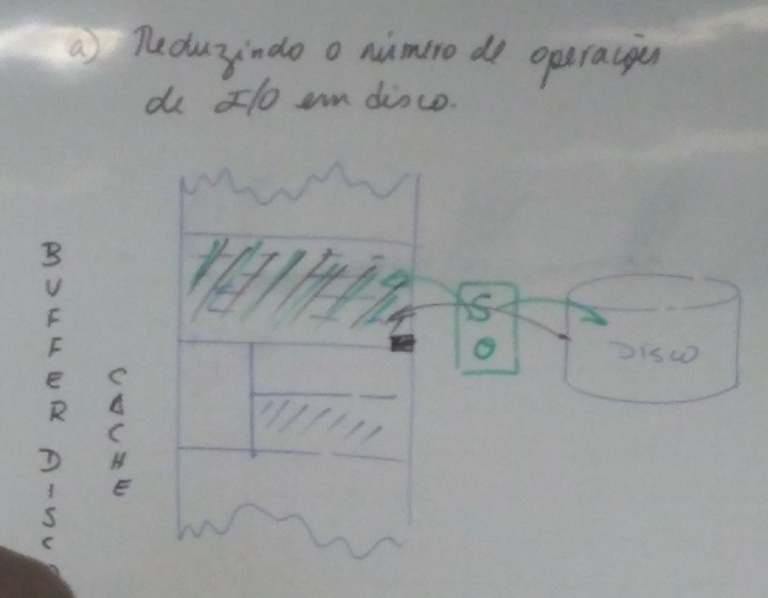 a) Reduzindo o número de operações
de I/O em disco.
BUFFER DISC
CACHE
SO
DISCO